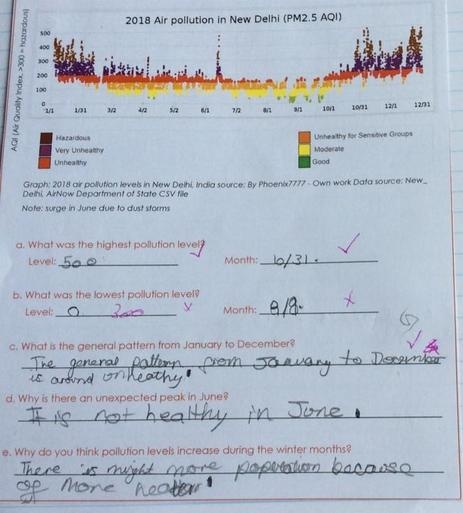 2018 Air pollution in New Delhi (PM2.5 AQI)
AQI (Air Quality Index, >300 = hazardous)
500
400
300
200
100
0
1/1 1/31 3/2 4/2 5/2 6/1 7/2 8/1 9/1 10/1 10/31 12/1 12/31
Hazardous Unhealthy for Sensitive Groups
Very Unhealthy Moderate
Unhealthy Good
Graph: 2018 air pollution levels in New Delhi, India source: By Phoenix7777 - Own work Data source: New_
Delhi, AirNow Department of State CSV file
Note: surge in June due to dust storms
a. What was the highest pollution level?
Level: 500 Month: 10/31.
b. What was the lowest pollution level?
Level: 0 300 Month: 8/8.
c. What is the general pattern from January to December?
The general pattern from January to December
is around onheathy
d. Why is there an unexpected peak in June?
It is not healthy in June.
e. Why do you think pollution levels increase during the winter months?
There is might more popolution bocause
of more